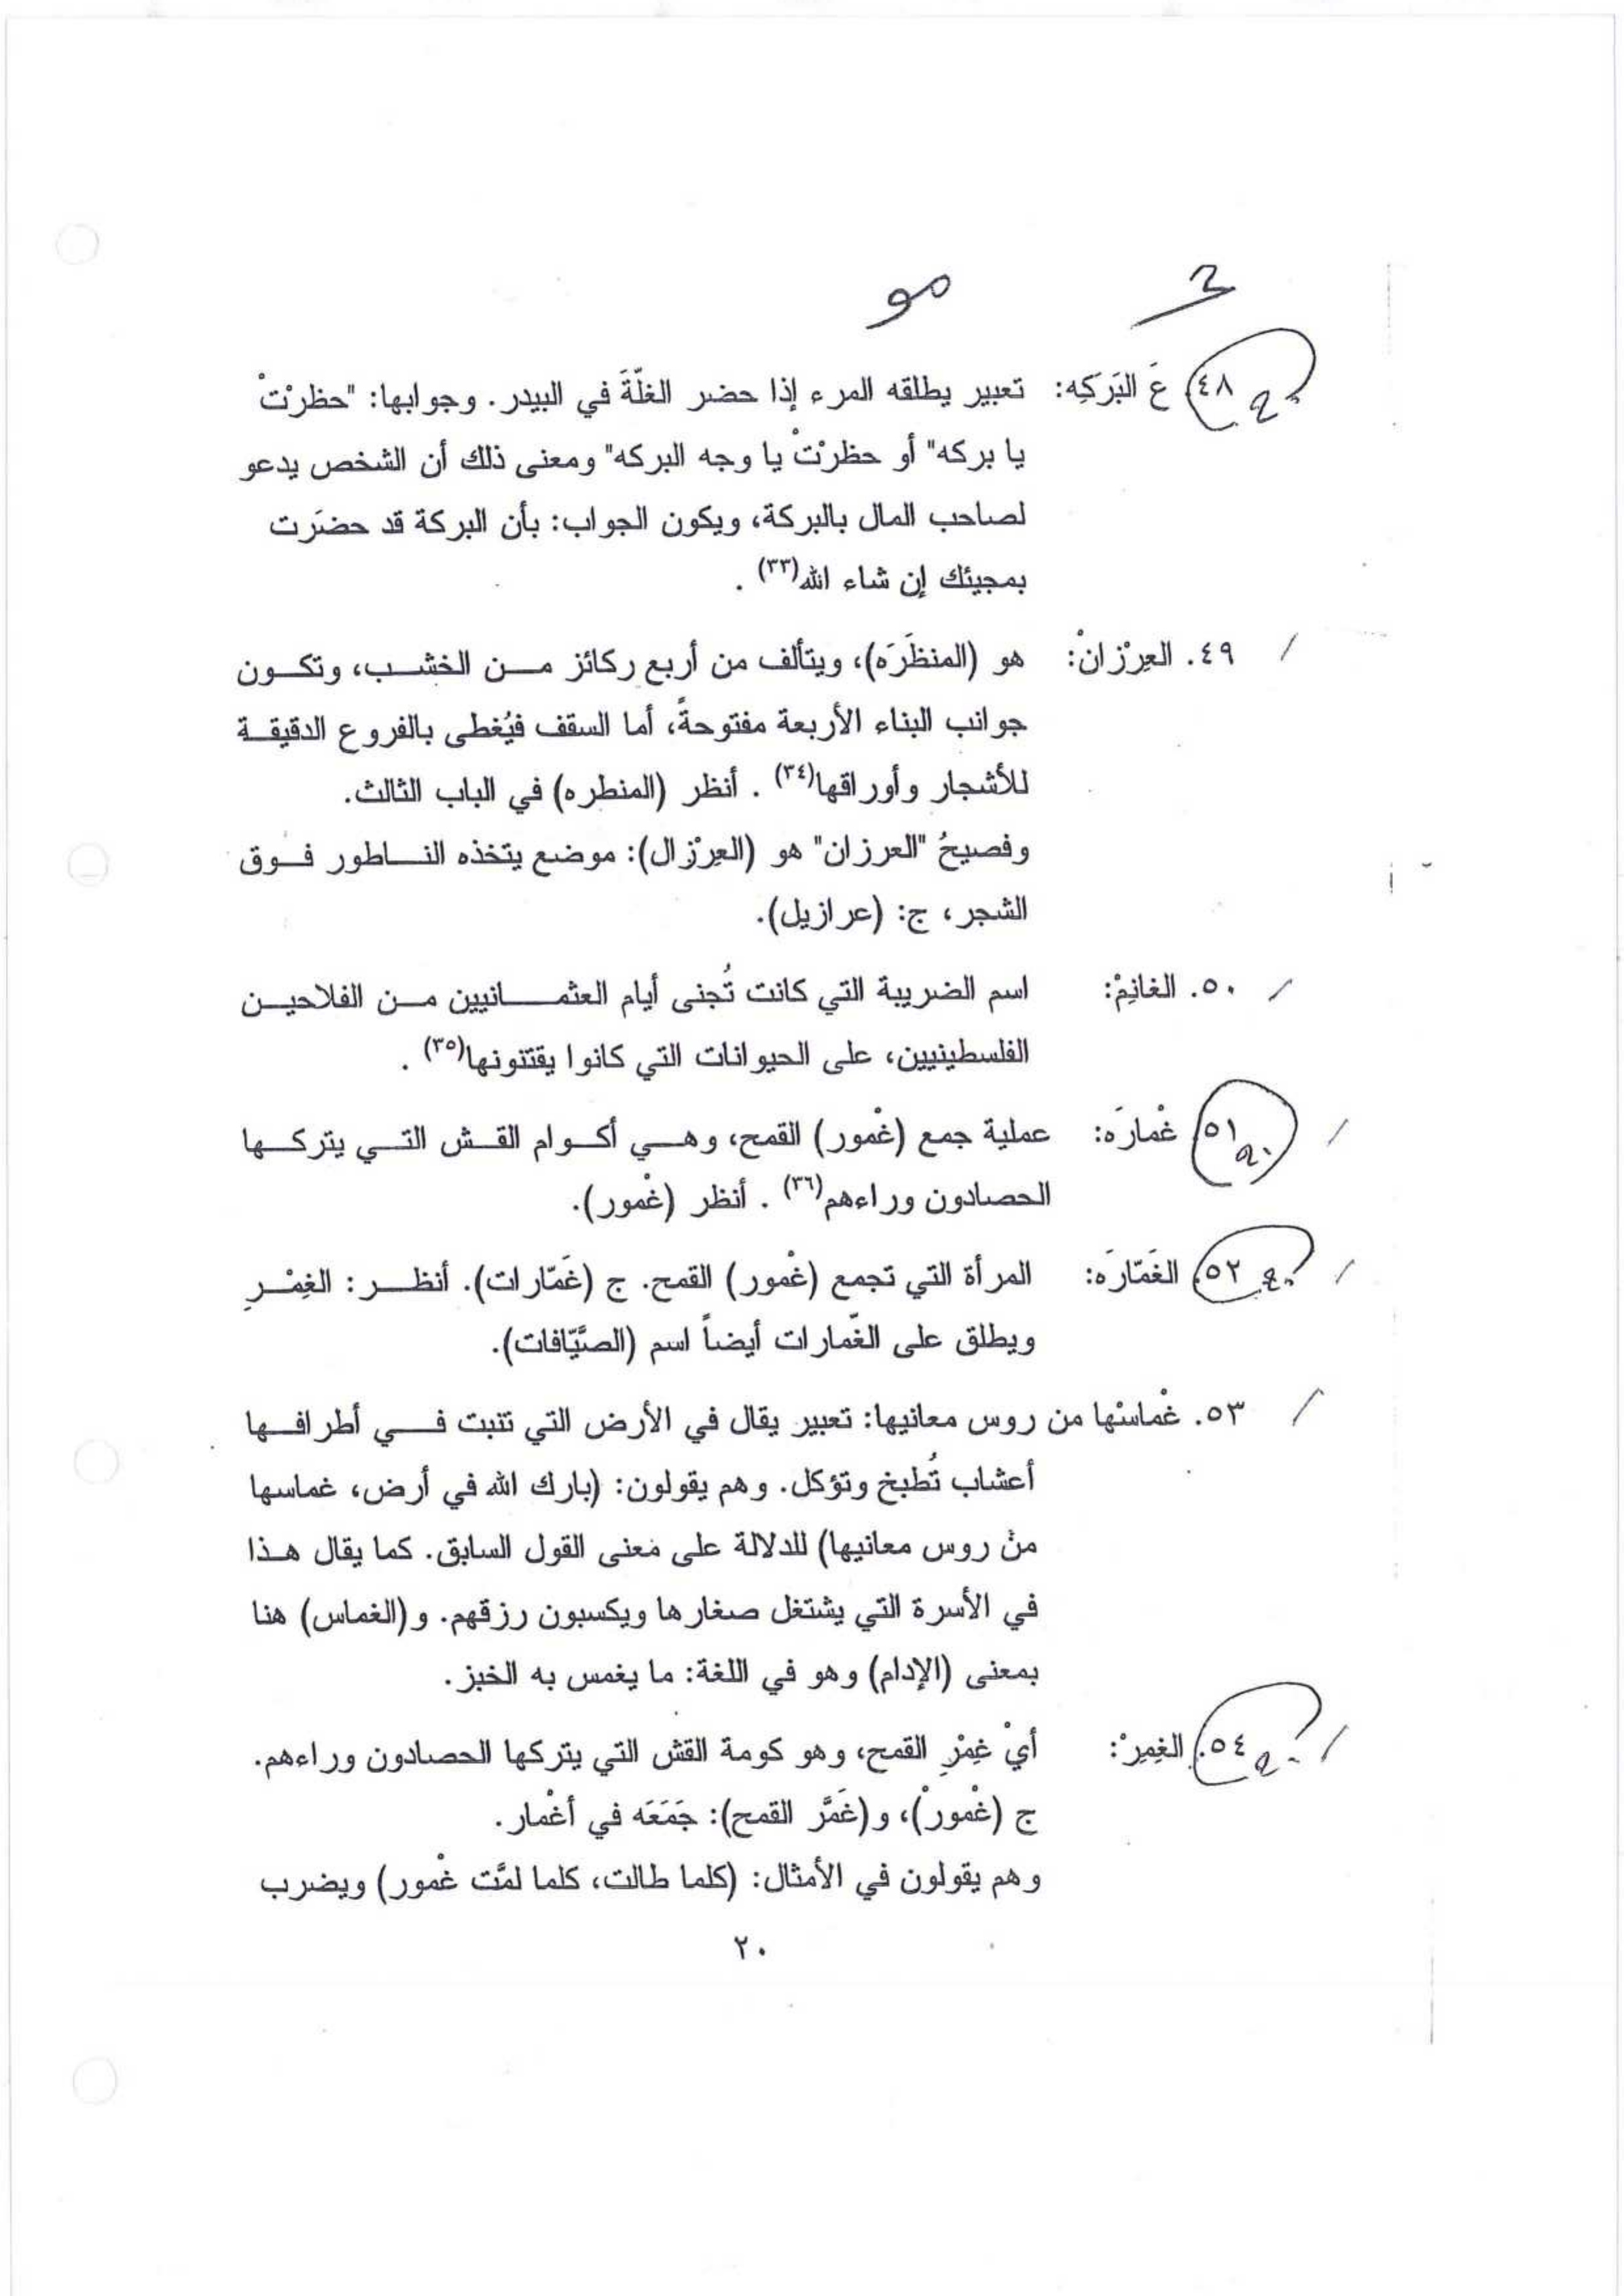 مو
٤٨. عَ البَركِه: تعبير يطلقه المرء إذا حضر الغلّةَ في البيدر. وجوابها: "حظرْتْ
يا بركه" أو حظرْتْ يا وجه البركه" ومعنى ذلك أن الشخص يدعو
لصاحب المال بالبركة، ويكون الجواب: بأن البركة قد حضَرت
بمجيئك إن شاء الله(٣٣) .
٤٩. العِرْزانْ: هو (المنظَرَه)، ويتألف من أربع ركائز مـن الخشـب، وتكـون
جوانب البناء الأربعة مفتوحةً، أما السقف فيُغطى بالفروع الدقيقـة
للأشجار وأوراقها(٣٤) . أنظر (المنطره) في الباب الثالث.
وفصيحُ "العرزان" هو (العِرْزال): موضع يتخذه النـاطور فـوق
الشجر، ج: (عرازيل).
٥٠. الغانِمْ: اسم الضريبة التي كانت تُجنى أيام العثمـانيين مـن الفلاحيـن
الفلسطينيين، على الحيوانات التي كانوا يقتنونها(٣٥) .
٥١. غْمارَه: عملية جمع (غْمور) القمح، وهـي أكـوام القـش التـي يتركـها
الحصادون وراءهم(٣٦) . أنظر (غْمور).
٥٢. الغَمّارَه: المرأة التي تجمع (غْمور) القمح. ج (غَمّارات). أنظـر: الغِمْـرِ
ويطلق على الغّمارات أيضاً اسم (الصَّيّافات).
٥٣. غْماسْها من روس معانيها: تعبير يقال في الأرض التي تنبت فـي أطرافـها
أعشاب تُطبخ وتؤكل. وهم يقولون: (بارك الله في أرض، غماسها
منْ روس معانيها) للدلالة على معنى القول السابق. كما يقال هـذا
في الأسرة التي يشتغل صغارها ويكسبون رزقهم. و(الغماس) هنا
بمعنى (الإدام) وهو في اللغة: ما يغمس به الخبز.
٥٤. الغِمِرْ: أيْ غِمْرِ القمح، وهو كومة القش التي يتركها الحصادون وراءهم.
ج (غْمورْ)، و(غَمَّر القمح): جَمَعَه في أغْمار.
وهم يقولون في الأمثال: (كلما طالت، كلما لمَّت غْمور) ويضرب
٢٠